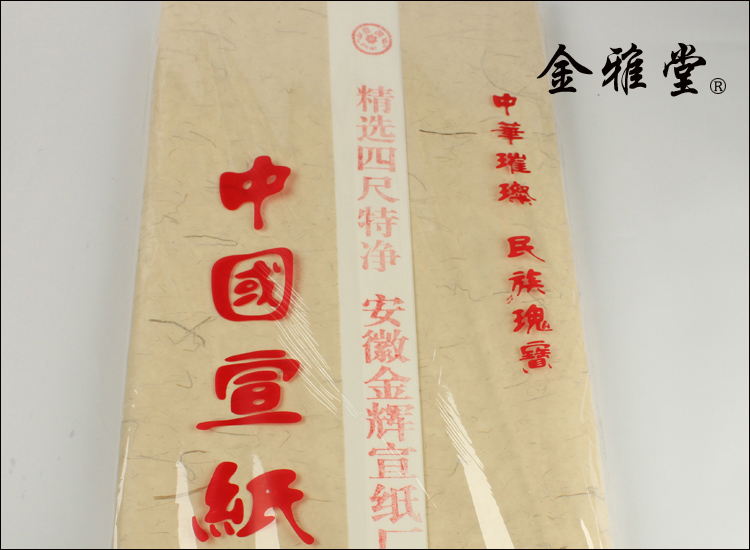 金雅堂®
中華璀璨 民族瑰寶
精选四尺特净 安徽金辉宣纸厂
中國宣紙